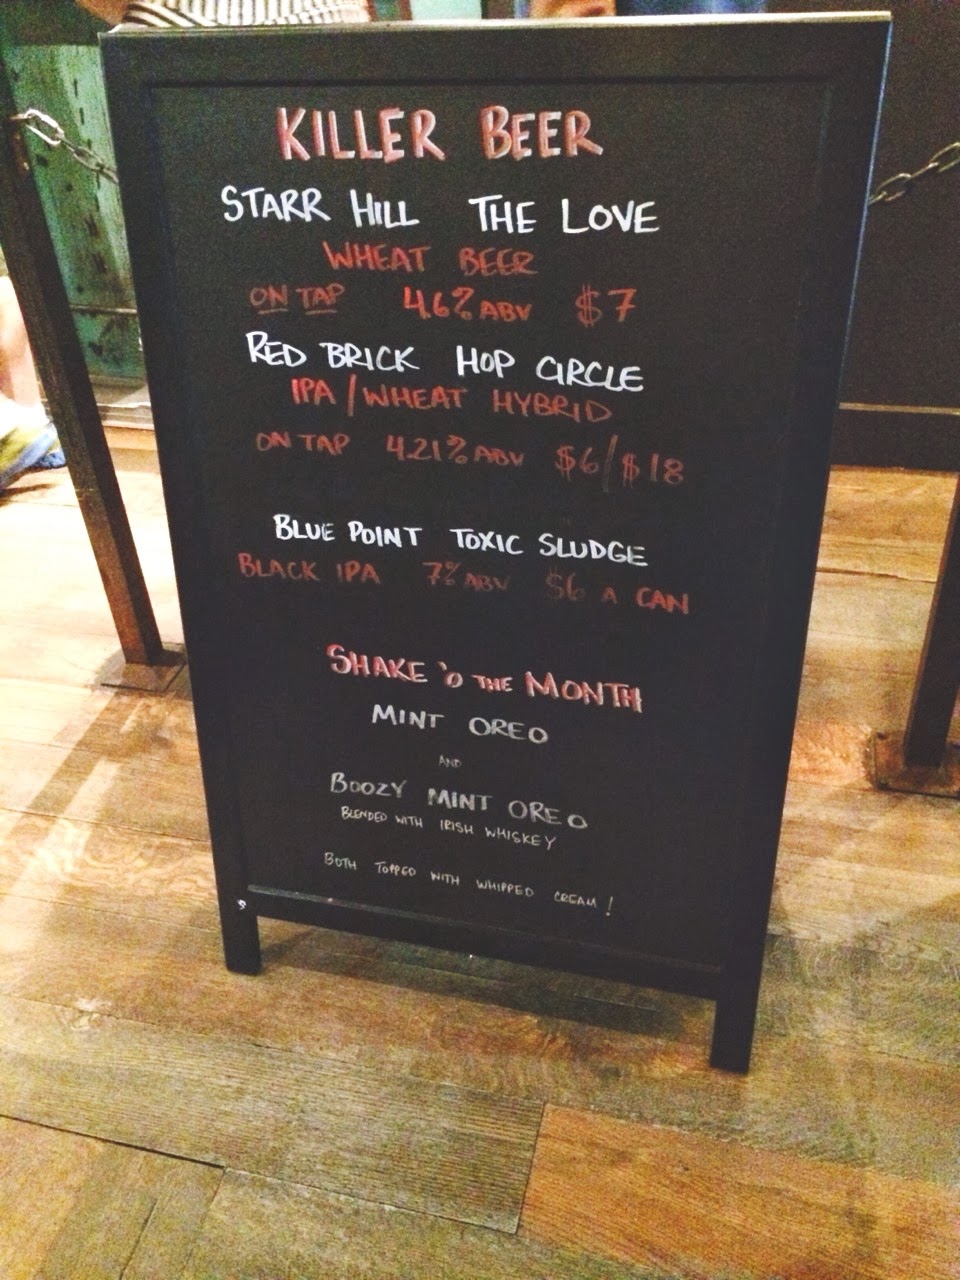 KILLER BEER
STARR HILL THE LOVE
WHEAT BEER
ON TAP 4.6% ABV $7
RED BRICK HOP CIRCLE
IPA/WHEAT HYBRID
ON TAP 4.21% ABV $6/$18
BLUE POINT TOXIC SLUDGE
BLACK IPA 7% ABV $6 A CAN
SHAKE 'O THE MONTH
MINT OREO
AND
BOOZY MINT OREO
BLENDED WITH IRISH WHISKEY
BOTH TOPPED WITH WHIPPED CREAM!